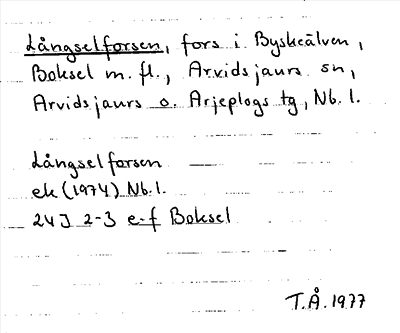 Långselforsen, fors i Byskeälven,
Boksel m. fl., Arvidsjaurs sn,
Arvidsjaurs o. Arjeplogs tg, Nb. l.
Långselforsen
ek (1974) Nb. l.
24J 2-3 e-f Boksel
T.Å. 1977